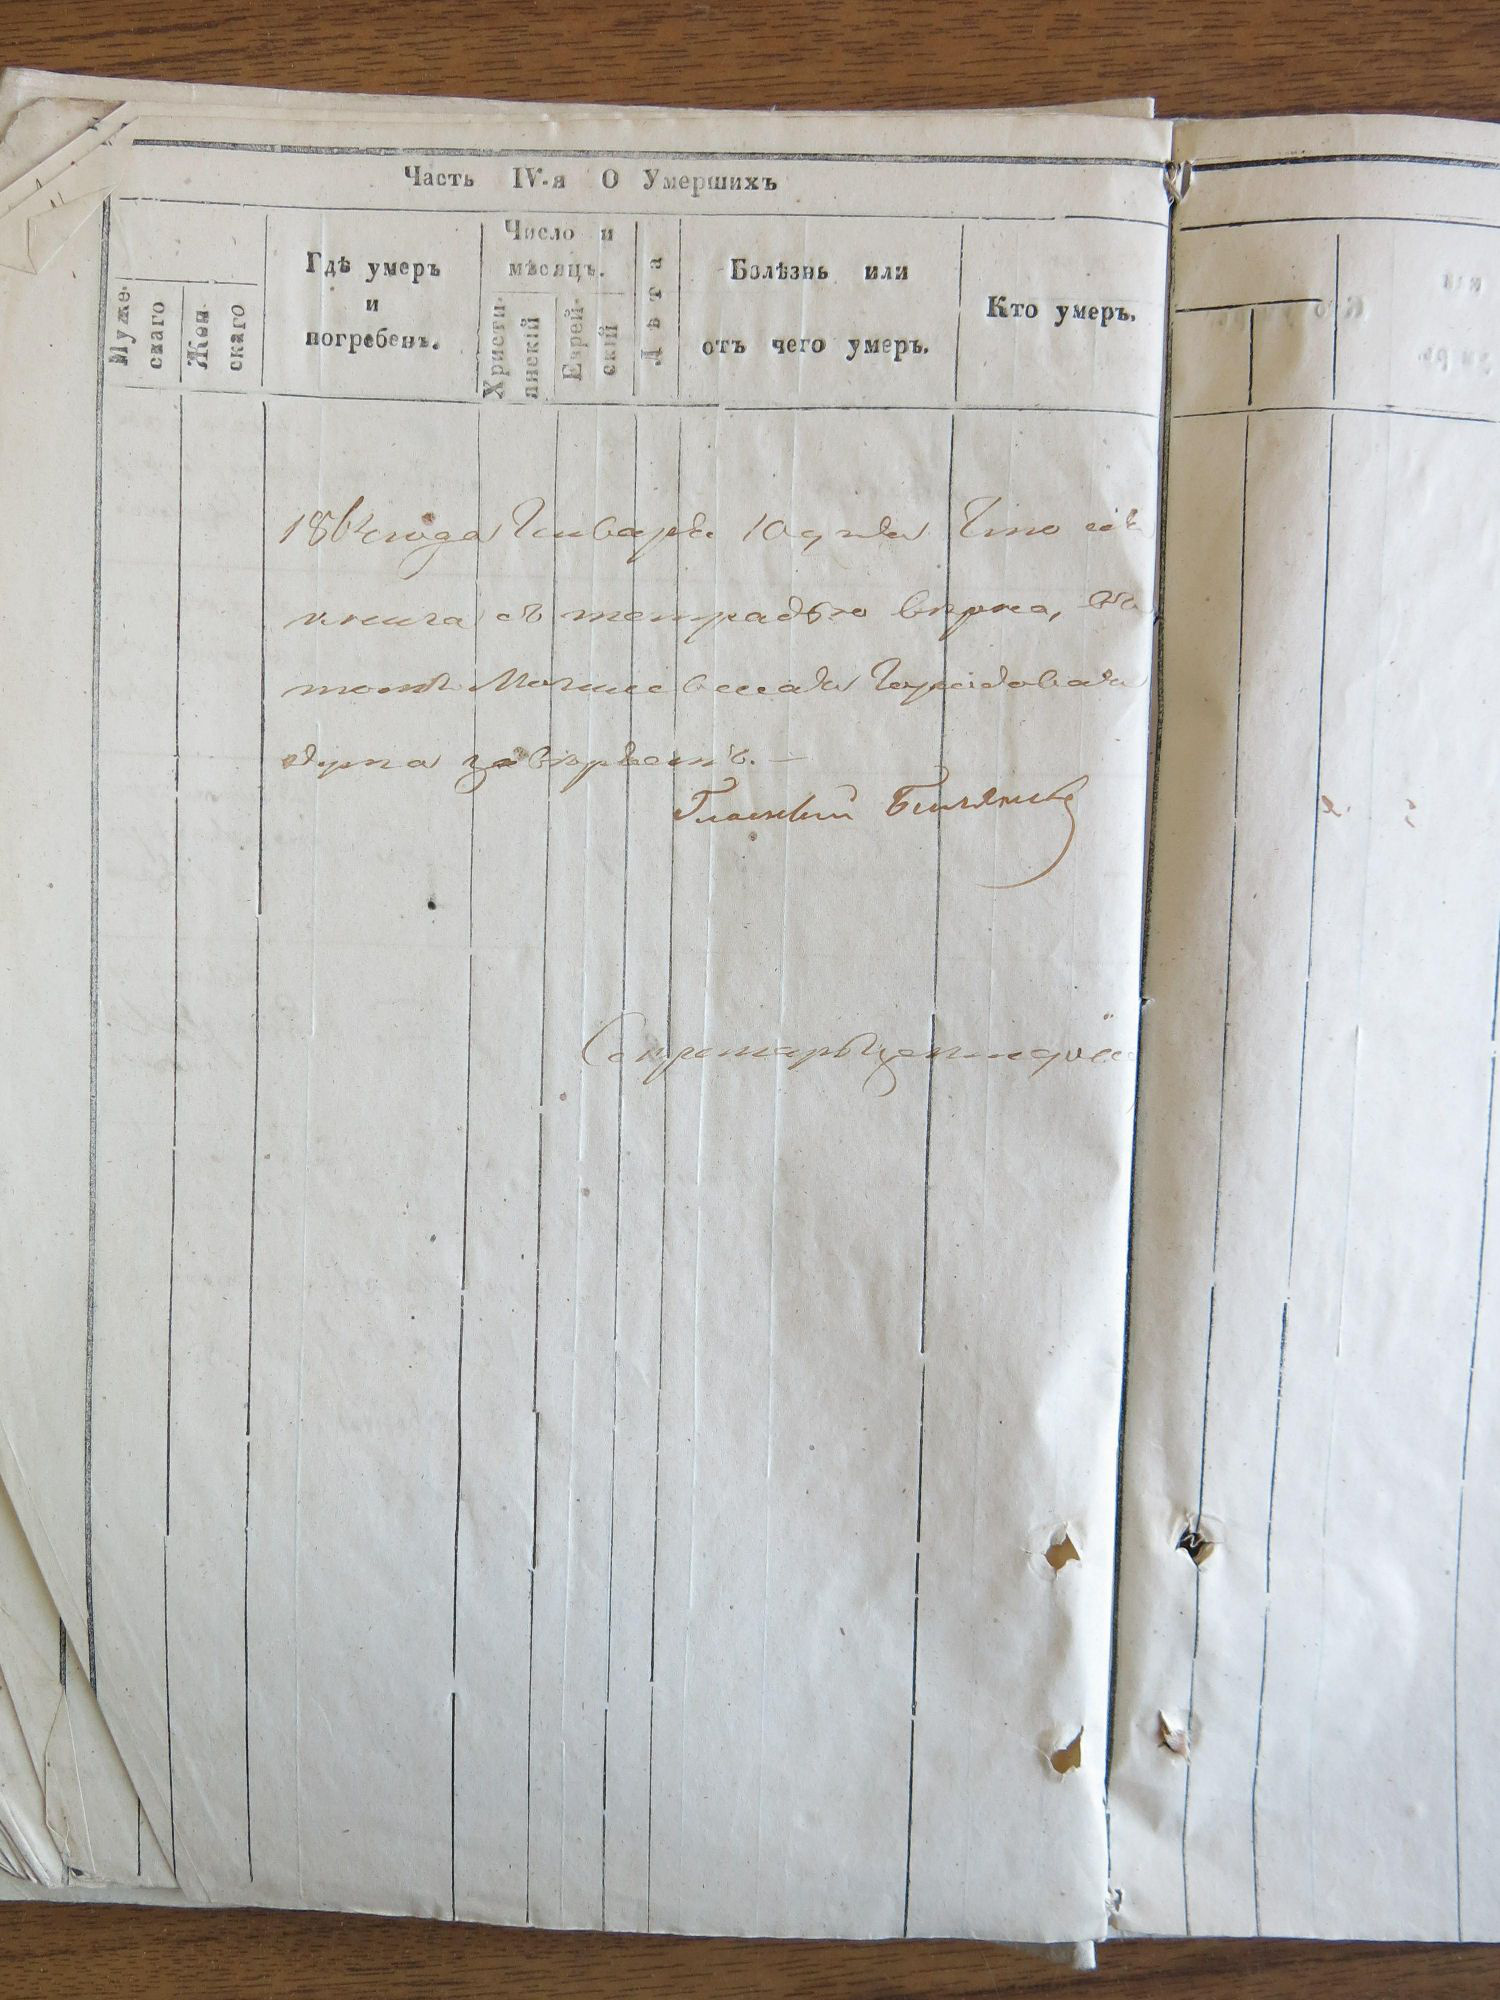 Часть IV-я О Умершихъ
Муже-
скаго
Жен-
скаго
Гдѣ умеръ
и
погребенъ.
Число и
мѣсяцъ.
Христи-
янскій
Еврей-
скій
Лѣта
Болѣзнь или
отъ чего умеръ.
Кто умеръ.
186 года Января 10 дня Что сія
книга съ тетрадью вѣрна, въ
томъ Могилевская Городовая
дума завѣряетъ. —
Гласный
Секретарь